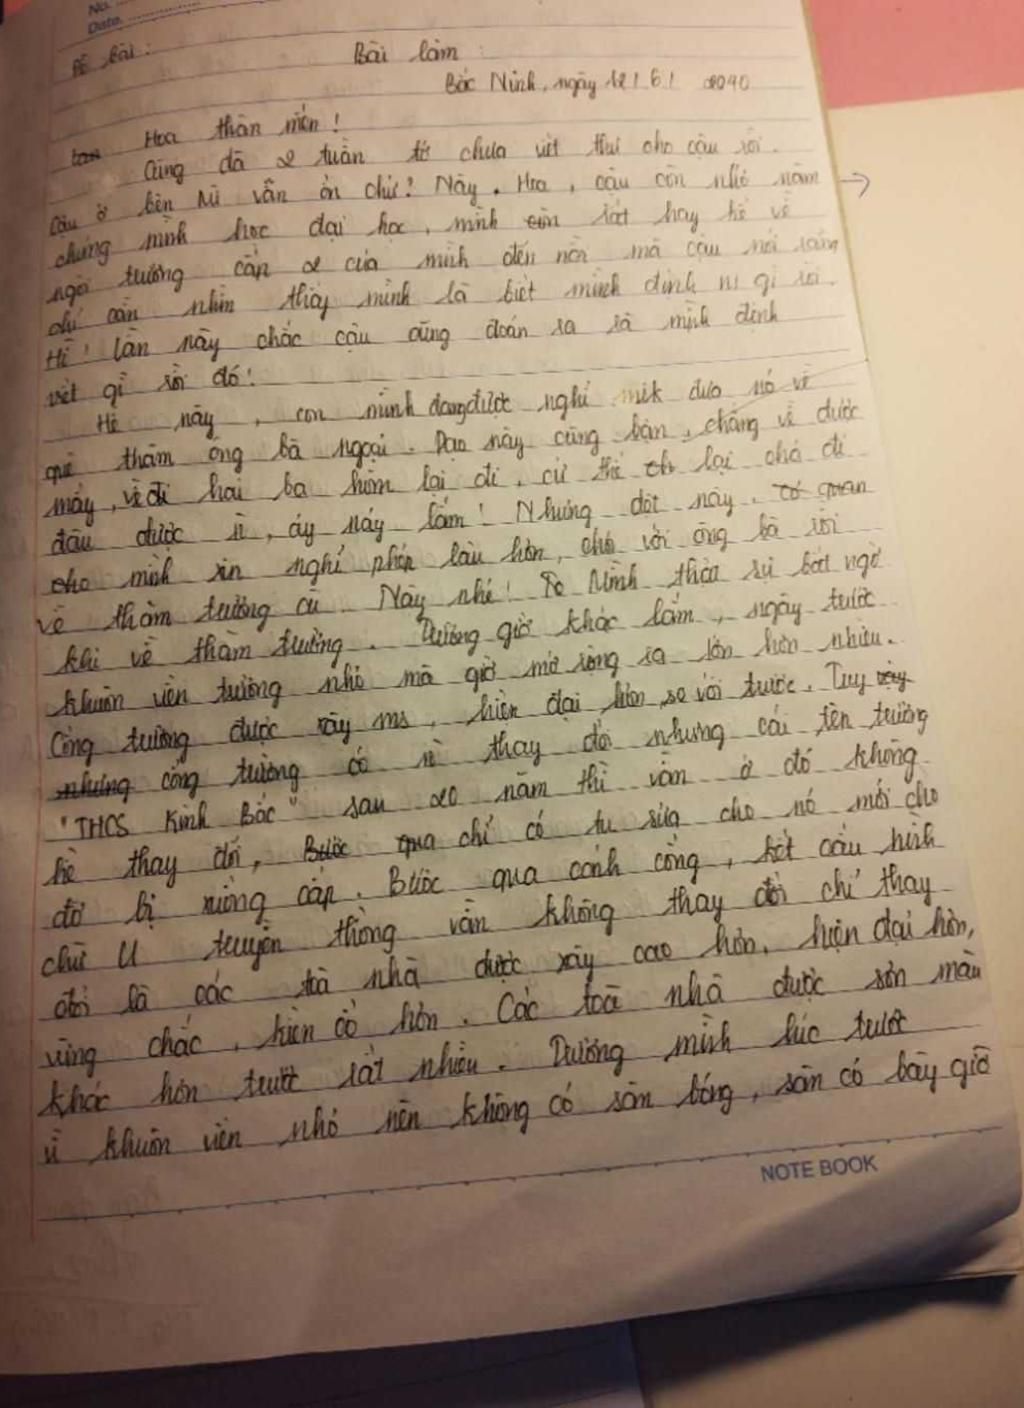 No.
Date.
Đề bài:
Bài làm:
Bắc Ninh, ngày 12/6/2040
Hoa thân mến!
Cũng đã 2 tuần tớ chưa viết thư cho cậu rồi.
Cậu ở bên Mĩ vẫn ổn chứ? Này, Hoa, cậu còn nhớ năm
chúng mình học đại học, mình rất hay kể về
ngôi trường cấp 2 của mình đến nỗi mà cậu nói rằng
chỉ cần nhìn thấy mình là biết mình định gì rồi.
Hì! lần này chắc cậu cũng đoán ra là mình định
viết gì rồi đó!
Hè này, con mình đang được nghỉ mik đưa nó về
quê thăm ông bà ngoại. Dạo này cũng bận, chẳng về được
mấy, về đi hai ba hôm lại đi, cứ thế lại chả đi
đâu được, áy náy lắm! Nhưng đợt này,
mình xin nghỉ phép lâu hơn, với ông bà rồi
về thăm trường cũ. Này nhé! Mình thật sự bất ngờ
khi về thăm trường. Trường giờ khác lắm, ngày trước
khuôn viên trường nhỏ mà giờ mở rộng ra lớn hơn nhiều.
Cổng trường được xây ms, hiện đại hơn so với trước. Tuy
cổng trường có thay đổi nhưng cái tên trường
"THCS Kinh Bắc" sau 20 năm thì vẫn ở đó không
hề thay đổi, chỉ có tu sửa cho nó mới cho
đỡ bị xuống cấp. Bước qua cánh cổng, kết cấu hình
chữ U truyền thống vẫn không thay đổi chỉ thay
đổi là các toà nhà được xây cao hơn, hiện đại hơn,
vững chắc, kiên cố hơn. Các toà nhà được sơn màu
khác hơn trước rất nhiều. Trường mình lúc trước
vì khuôn viên nhỏ nên không có sân bóng, sân cỏ bây giờ
NOTE BOOK